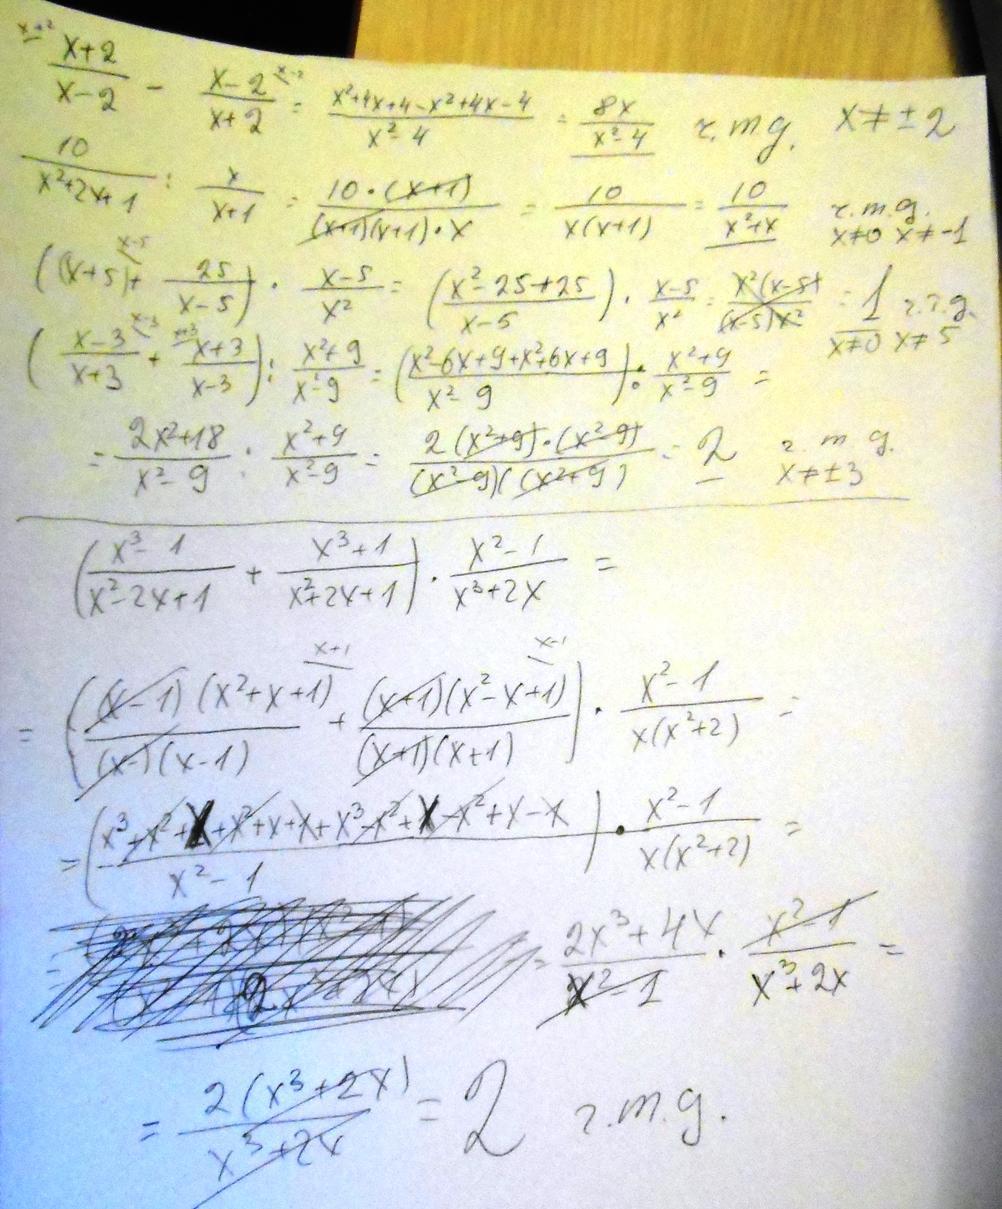 x+2 (x+2)/(x-2) - (x-2)/(x+2) x-2 = (x²+4x+4-x²+4x-4)/(x²-4) = 8x/(x²-4) r.m.g. x≠±2
10/(x²+2x+1) : x/(x+1) = 10·(x+1)/((x+1)(x+1)·x) = 10/(x(x+1)) = 10/(x²+x) r.m.g. x≠0 x≠-1
((x+5) x-5 + 25/(x-5)) · (x-5)/x² = ((x²-25+25)/(x-5)) · (x-5)/x² = x²(x-5)/((x-5)x²) = 1 x≠0 x≠5
((x-3)/(x+3) x-3 + x+3 (x+3)/(x-3)) : (x²+9)/(x²-9) = ((x²-6x+9+x²+6x+9)/(x²-9)) : (x²+9)/(x²-9) =
= (2x²+18)/(x²-9) : (x²+9)/(x²-9) = 2(x²+9)·(x²-9)/((x²-9)((x²+9)) = 2 r.m.g. x≠±3
((x³-1)/(x²-2x+1) + (x³+1)/(x²+2x+1)) · (x²-1)/(x³+2x) =
= ((x-1)(x²+x+1)/((x-1)(x-1)) x+1 + (x+1)(x²-x+1)/((x+1)(x+1)) x-1) · (x²-1)/(x(x²+2)) =
= ((x³+x²+x+x²+x+x+x³-x²+x-x²+x-x)/(x²-1)) · (x²-1)/(x(x²+2)) =
= (2x³+4x)/(x²-1) · (x²-1)/(x³+2x) =
= 2(x³+2x)/(x³+2x) = 2 r.m.g.